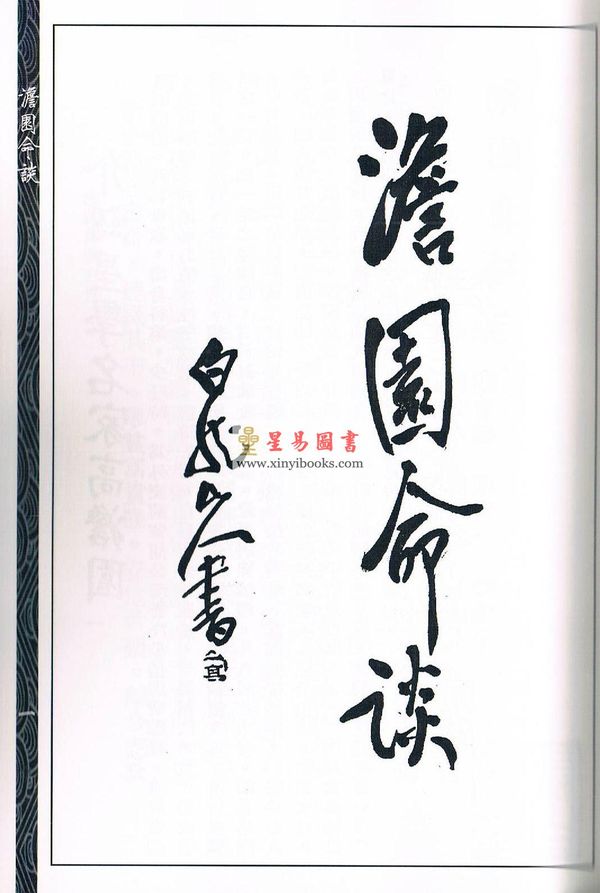 澹園命談
白龍山人書
澹園命談
一
星易圖書
www.xinyibooks.com